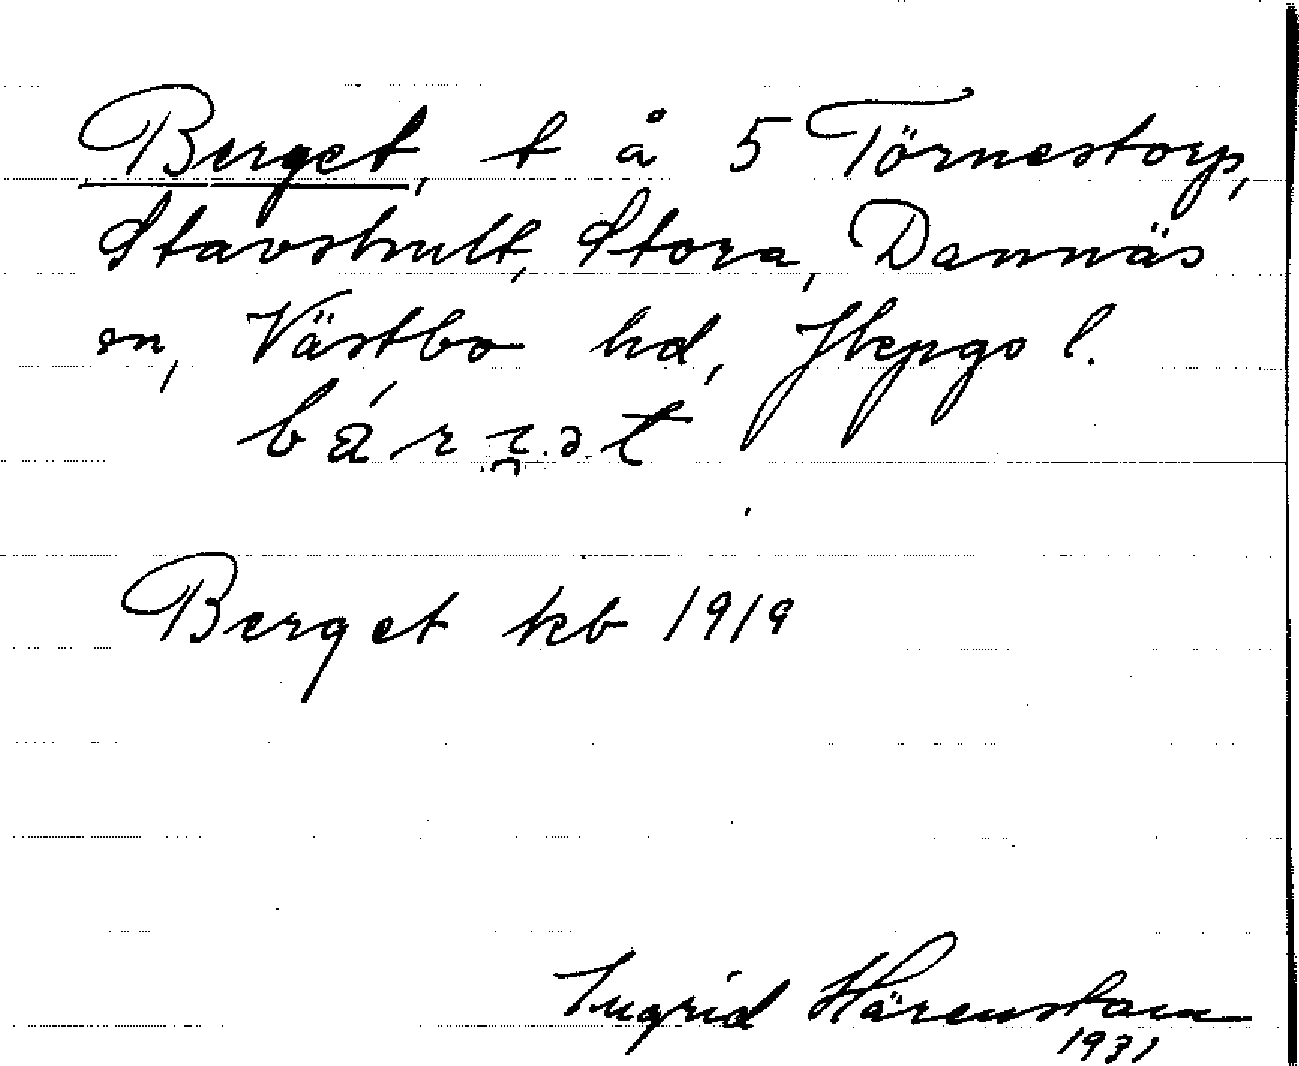 Berget, t å 5 Törnestorp,
Stavshult, Stora, Dannäs
sn, Västbo hd, Jkpgs l.
Berget kb 1919
Ingrid Härenstam
1931